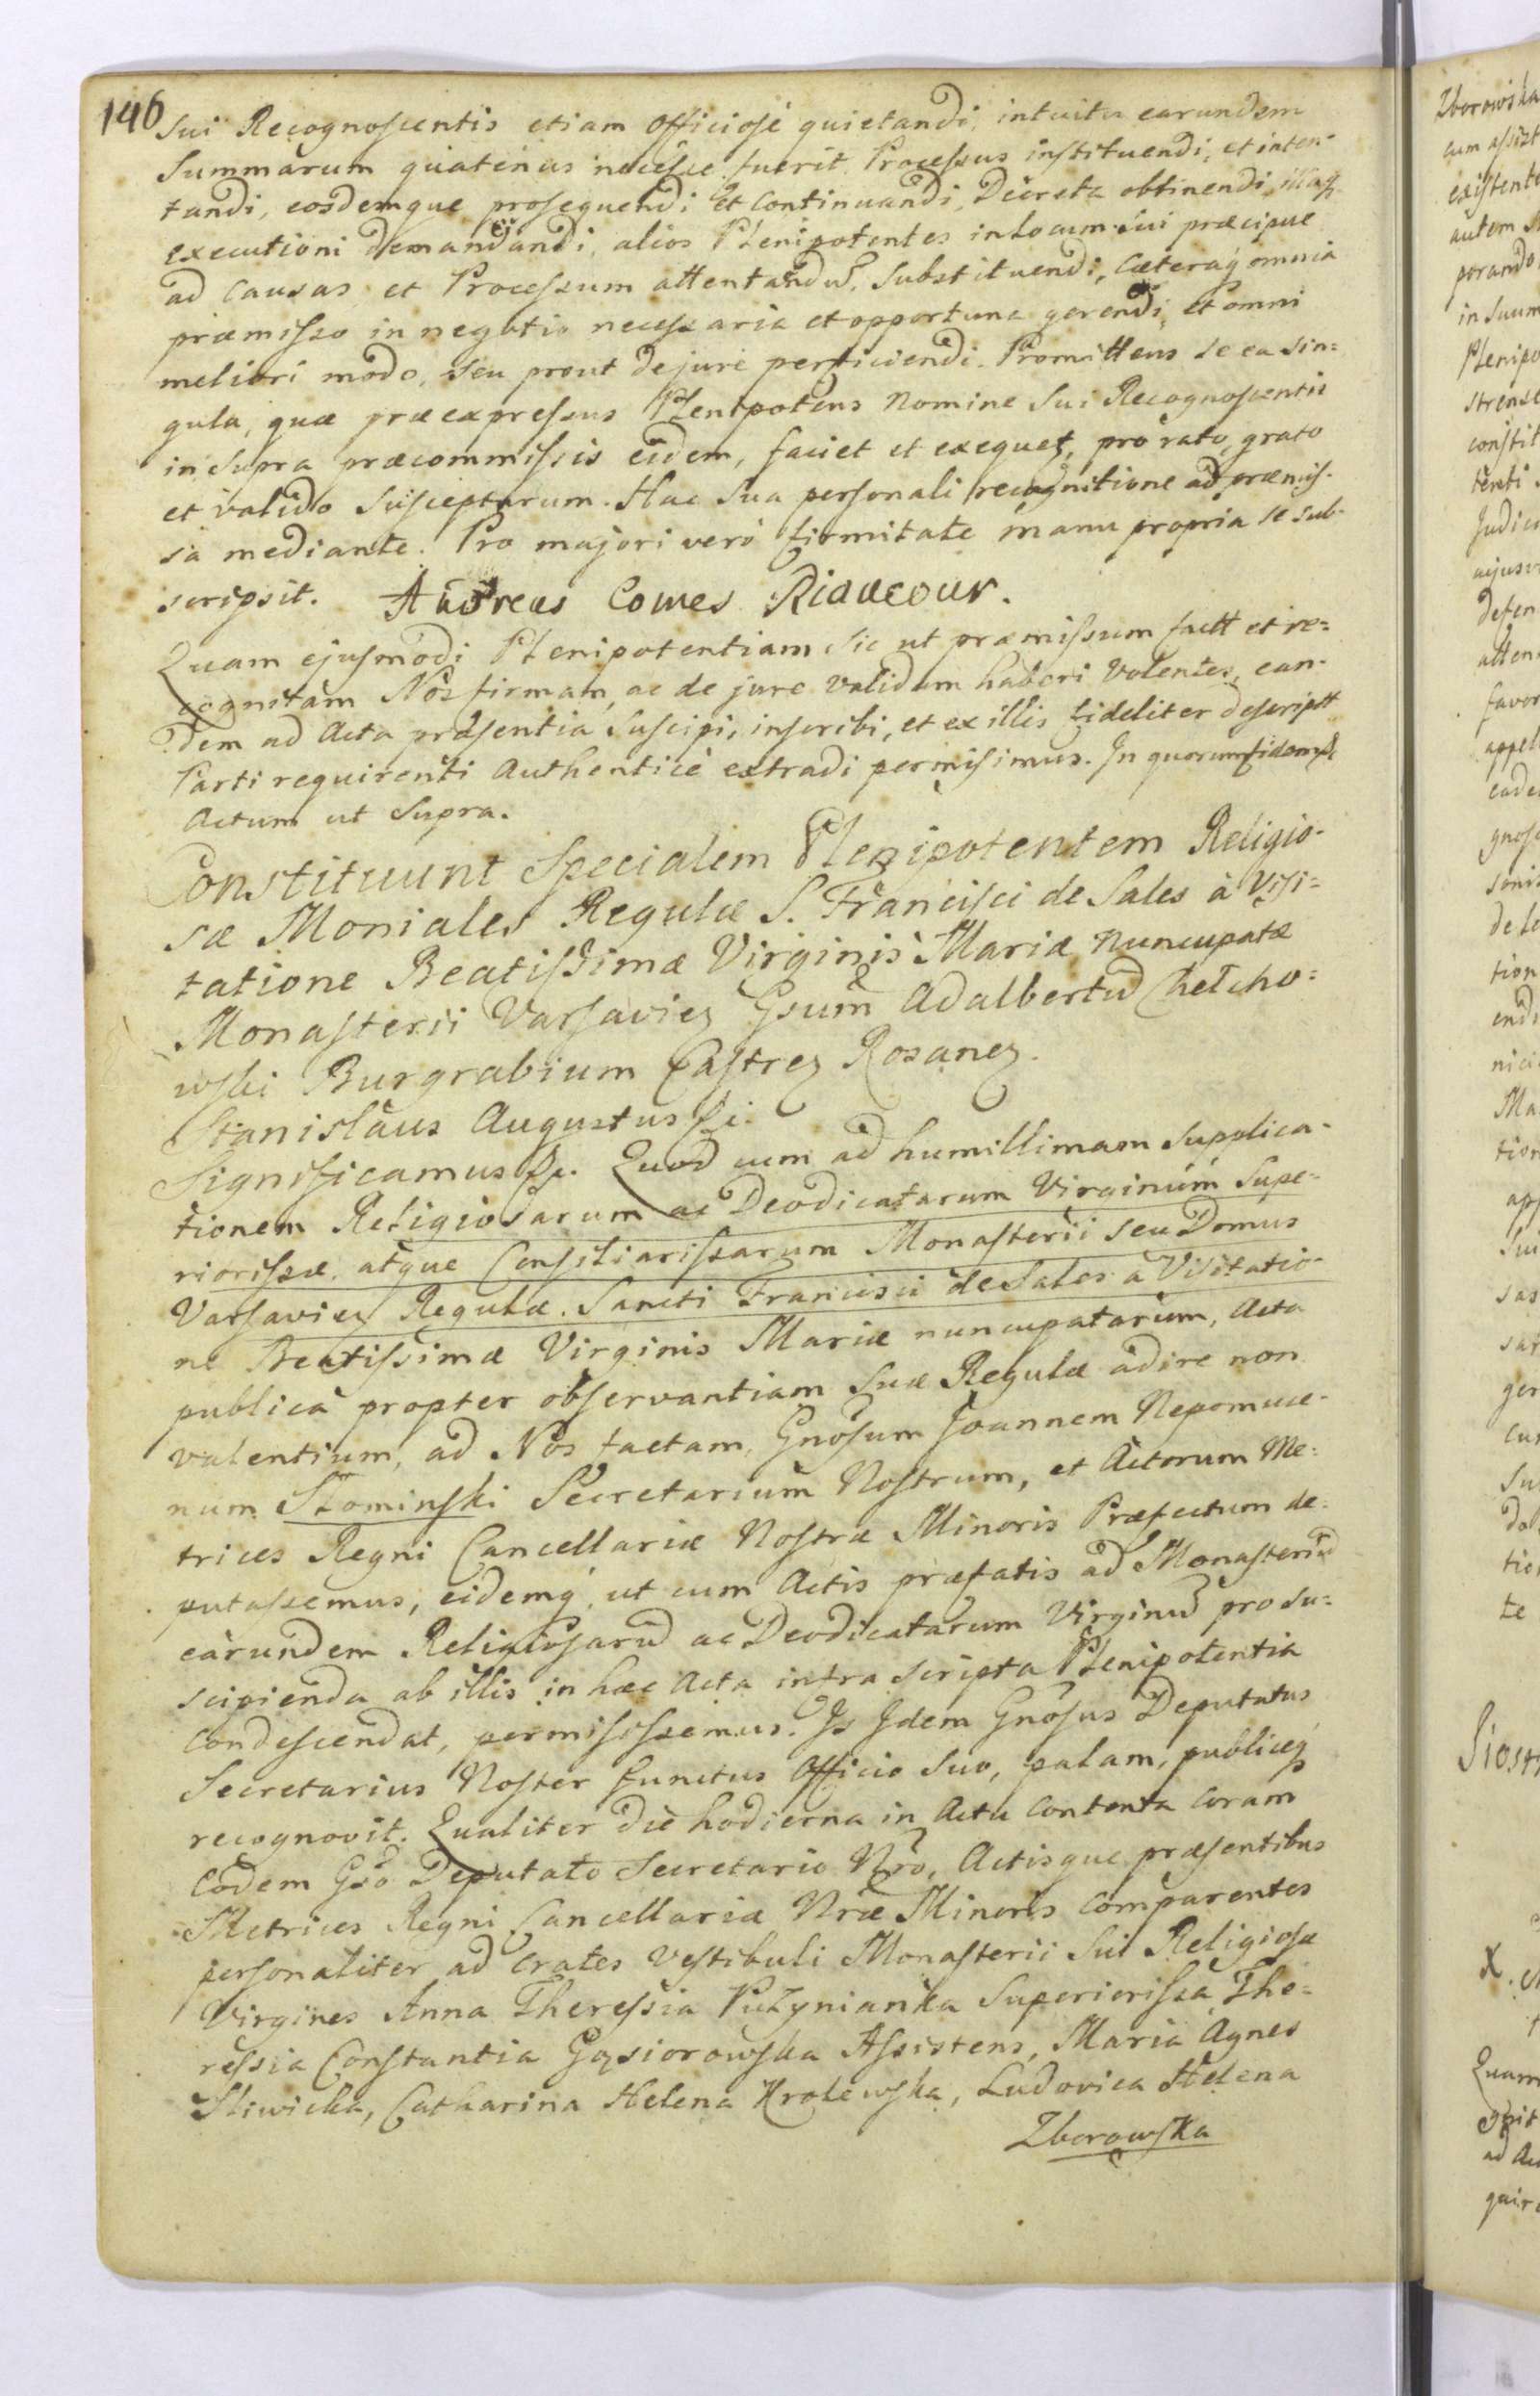 146
Sui Recognoscentis etiam Officiosè quietandi, intuitu earundem
Summarum quatenus necesse fuerit Processus instituendi, et inten-
tandi, eosdemque prosequendi et Continuandi, Decreta obtinendi, illaq
executioni demandandi, alios Plenipotentes in locum sui præcipue
ad Causas et Processum attentandũ, Substituendi, Cæteraq omnia
præmisso in negotio necessaria et opportuna gerendi, et omni
meliori modo, seu prout de jure perficiendi. Promittens se ea sin=
gula, quæ præexpressus Plenipotens Nomine Sui Recognoscentis
in supra præcommissis eidem, faciet et exequet, pro rato, grato
et valido Suscepturum. Hac Sua personali recognitione ad præmis-
sa mediante. Pro majori verò firmitate manu propria se sub-
scripsit. Andreas Comes Riaucour.
Quam ejusmodi Plenipotentiam sic ut præmissum factt et re=
cognitam Nos firmam, ac de jure validam haberi Volentes, ean-
dem ad Acta præsentia Suscipi, inscribi, et ex illis fideliter descriptt
Parti requirenti Authenticè extradi permisimus. In quorum fidem
Actum ut Supra.
Constituunt Specialem Plenipotentem Religio-
sæ Moniales Regulæ S. Francisci de Sales à Visi=
tatione Beatissimæ Virginis Mariæ nuncupatæ
Monasterii Varsavien Gsum Adalbertũ Chelcho=
wski Burgrabium Castren Rosanen.
Stanislaus Augustus &c.
Significamus &c. Quod cum ad humillimam Supplica-
tionem Religiosarum ac Deodicatarum Virginum Supe-
riorissæ, atque Consiliarissarum Monasterii seu Domus
Varsavien Regulæ Sancti Francisci de Sales à Visitatio-
ne Beatissimæ Virginis Mariæ nuncupatarum, Acta
publica propter observantiam Suæ Regulæ adire non
valentium, ad Nos factam, Gnosum Joannem Nepomuce-
num Słominski Secretarium Nostrum, et Actorum Me-
trices Regni Cancellariæ Nostræ Minoris Præfectum de-
putassemus, eidemq, ut cum Actis præfatis ad Monasteriũ
earundem Religiosarũ ac Deodicatarum Virginũ pro su=
scipienda ab illis in hæc Acta infra scripta Plenipotentia
Condescendat, permisissemus. Is Idem Gnosus Deputatus
Secretarius Noster functus Officio Suo, palam, publiceq
recognovit. Qualiter die hodierna in Actu Contenta Coram
Eodem Gso Deputato Secretario Nro, Actisque præsentibus
Metrices Regni Cancellariæ Nræ Minoris Comparentes
personaliter ad Crates Vestibuli Monasterii Sui Religiosæ
Virgines Anna Theressia Puzynianka Superiorissa, The=
ressia Constantia Gąsiorowska Assistens, Maria Agnes
Sliwicka, Catharina Helena Krolewska, Ludovica Helena
Zborowska